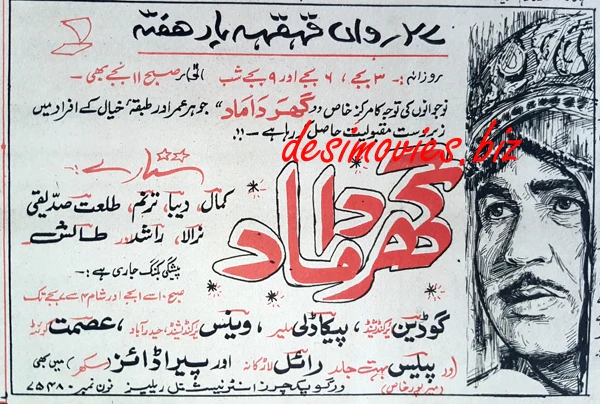 ۲۷ رواں قہقہہ بار ہفتہ
روزانہ :- ۳ بجے ، ۶ بجے اور ۹ بجے شب اتوار صبح ۱۱ بجے بھی -
نوجوانوں کی توجہ کا مرکز خاص "گھر داماد" جو ہر عمر اور طبقۂ خیال کے افراد میں
زبردست مقبولیت حاصل کر رہا ہے -- !!
desimovies.biz
ستارے :
کمال، دیبا، ترنم، طلعت صدیقی
نرالا، راشد اور طالش
گھر داماد
پیشگی بکنگ جاری ہے :-
صبح ۱۰ سے ۱ بجے اور شام ۴ سے ۷ بجے تک
گوڈین ایئرکنڈیشنڈ، پیکاڈلی ملیر، وینس ایئرکنڈیشنڈ، حیدرآباد، عصمت
اور پیلس (میرپور خاص) بہت جلد رائل لاڑکانہ اور پیراڈائز (سکھر) میں بھی
ورگو پکچرز انٹرنیشنل ریلیز فون نمبر ۷۵۴۸۰